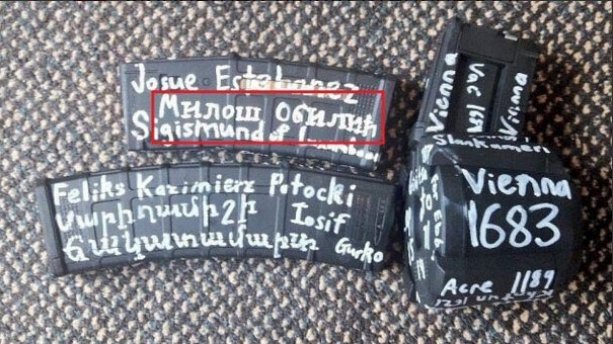 Josue Estebanez
Милош Обилић
Sigismund of
Feliks Kazimierz Potocki
Սարիղամիշի Iosif
ճակատամարտ Gurko
Vienna
Vac
Vienna
Vienna
1683
Acre 1189